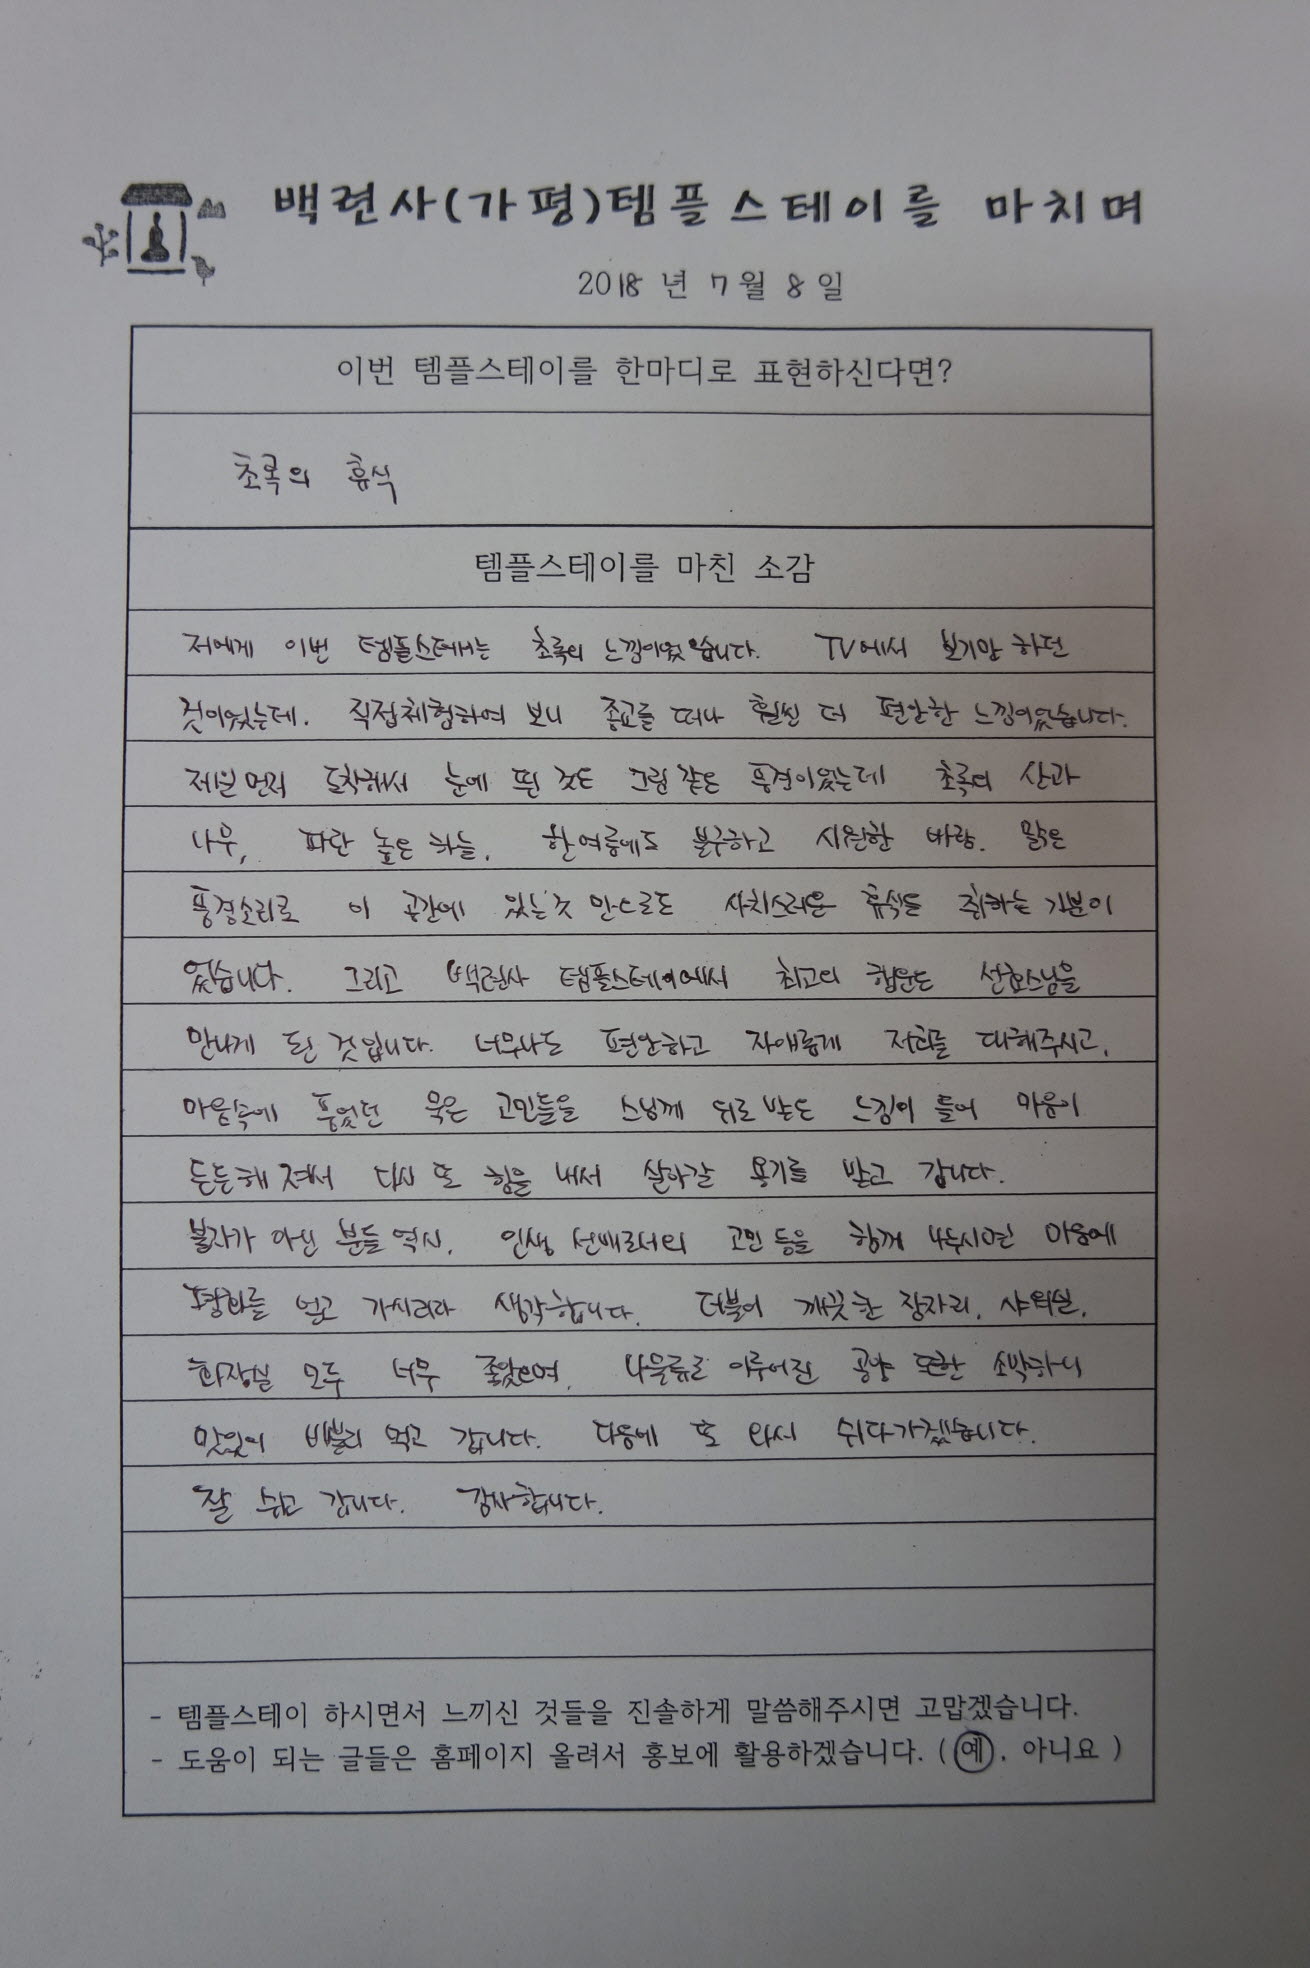 백련사(가평)템플스테이를 마치며
2018 년 7월 8일
이번 템플스테이를 한마디로 표현하신다면?
초록의 휴식
템플스테이를 마친 소감
저에게 이번 템플스테이는 초록의 느낌이었습니다. TV에서 보기만 하던
것이었는데. 직접체험하여 보니 종교를 떠나 훨씬 더 편안한 느낌이었습니다.
제일 먼저 도착해서 눈에 띈 것은 그림 같은 풍경이었는데 초록의 산과
나무, 파란 높은 하늘. 한여름에도 불구하고 시원한 바람. 맑은
풍경소리로 이 공간에 있는것 만으로도 사치스러운 휴식을 취하는 기분이
었습니다. 그리고 백련사 템플스테이에서 최고의 행운은 선효스님을
만나게 된 것입니다. 너무나도 편안하고 자애롭게 저희를 대해주시고,
마음속에 품었던 묵은 고민들을 스님께 위로 받는 느낌이 들어 마음이
든든해 져서 다시 또 힘을 내서 살아갈 용기를 받고 갑니다.
불자가 아닌 분들 역시, 인생 선배로서의 고민 등을 함께 나누시면 마음에
평화를 얻고 가시리라 생각합니다. 더불어 깨끗한 잠자리, 샤워실,
화장실 모두 너무 좋았으며, 나물류로 이루어진 공양 또한 소박하니
맛있어 배불리 먹고 갑니다. 다음에 또 와서 쉬다가겠습니다.
잘 쉬고 갑니다. 감사합니다.
- 템플스테이 하시면서 느끼신 것들을 진솔하게 말씀해주시면 고맙겠습니다.
- 도움이 되는 글들은 홈페이지 올려서 홍보에 활용하겠습니다. (예, 아니요 )